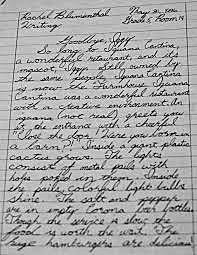 Rachel Blumenthal May 21,
Writing Grade 5, Room 14
Goodbye, Iggy
So long to Iguana Cantina,
a wonderful retaurant, and its
mascot, Iggy. Still owned by
the same people, Iguana Cantina
is now the Farmhouse. Iguana
Cantina was a wonderful restaurant
with a festive environment. An
iguana (not real) greets you
at the entrance with a cheerful
"Close the door! Were you born in
a barn?!" Inside a giant plastic
cactus grows. The lights
consist of metal pails with
holes poked in them. Inside
the pails, colorful light bulbs
shine. The salt and pepper
are in empty Corona beer bottles.
Though the service is slow, the
food is worth the wait. The
huge hamburgers are delicious